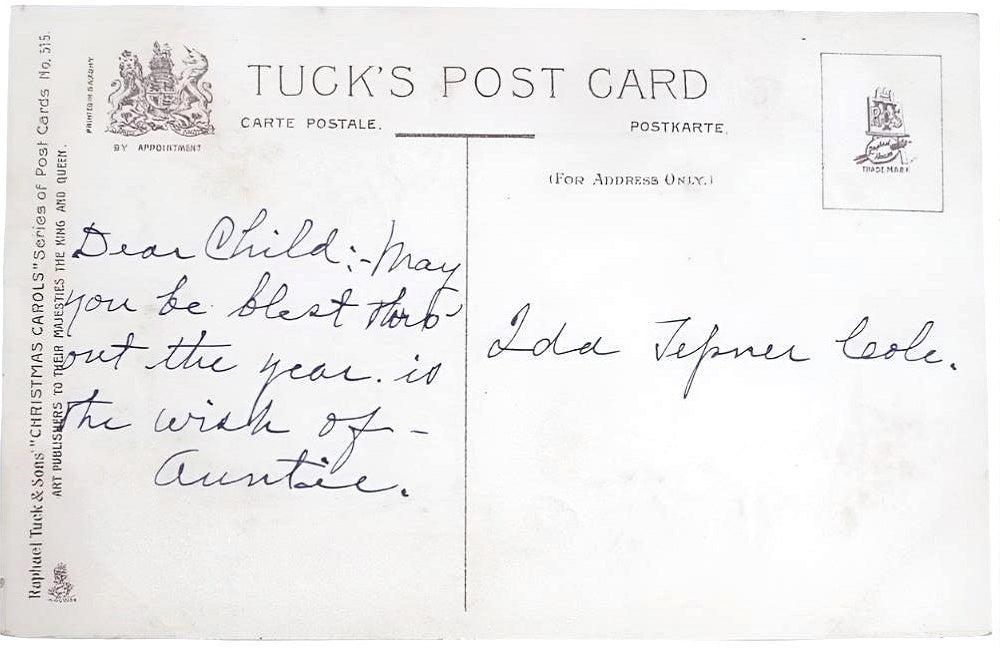 Raphael Tuck & Sons' "CHRISTMAS CAROLS" Series of Post Cards No. 515.
ART PUBLISHERS TO THEIR MAJESTIES THE KING AND QUEEN.
PRINTED IN SAXONY
BY APPOINTMENT
TUCK'S POST CARD
CARTE POSTALE.
POSTKARTE.
(FOR ADDRESS ONLY.)
TRADE MARK
Dear Child:- May
you be blest thro'
out the year. is
the wish of -
Auntie.
Ida Cole.